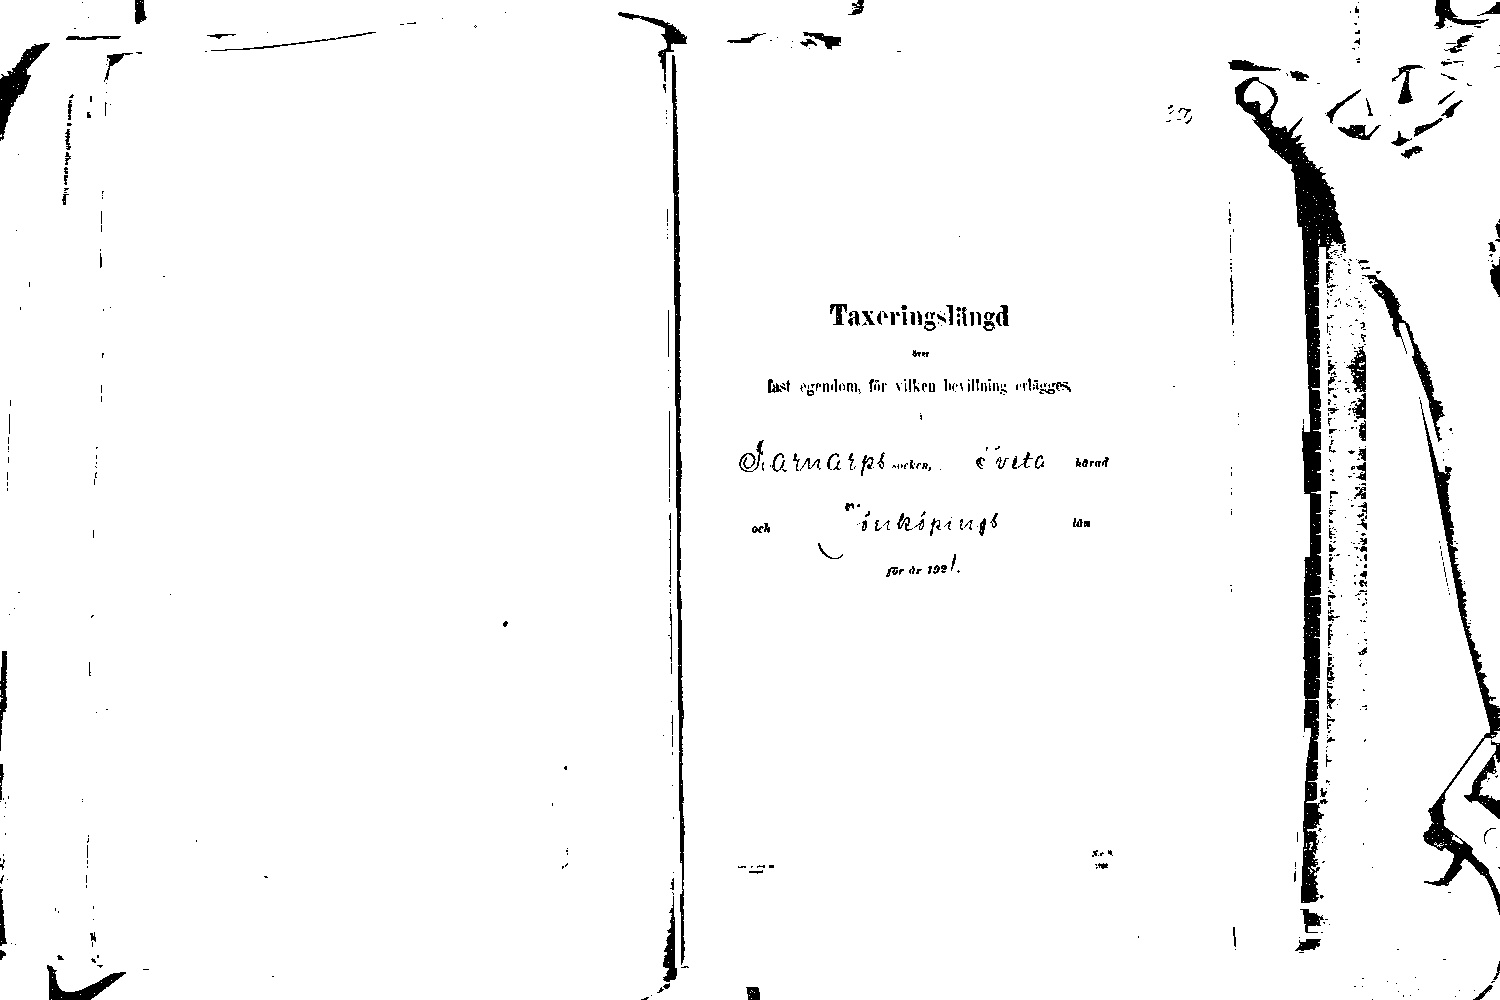 Taxeringslängd
över
fast egendom, för vilken bevillning erlägges,
i
Barnarps socken, Tveta härad
och Jönköpings län
för år 1921.